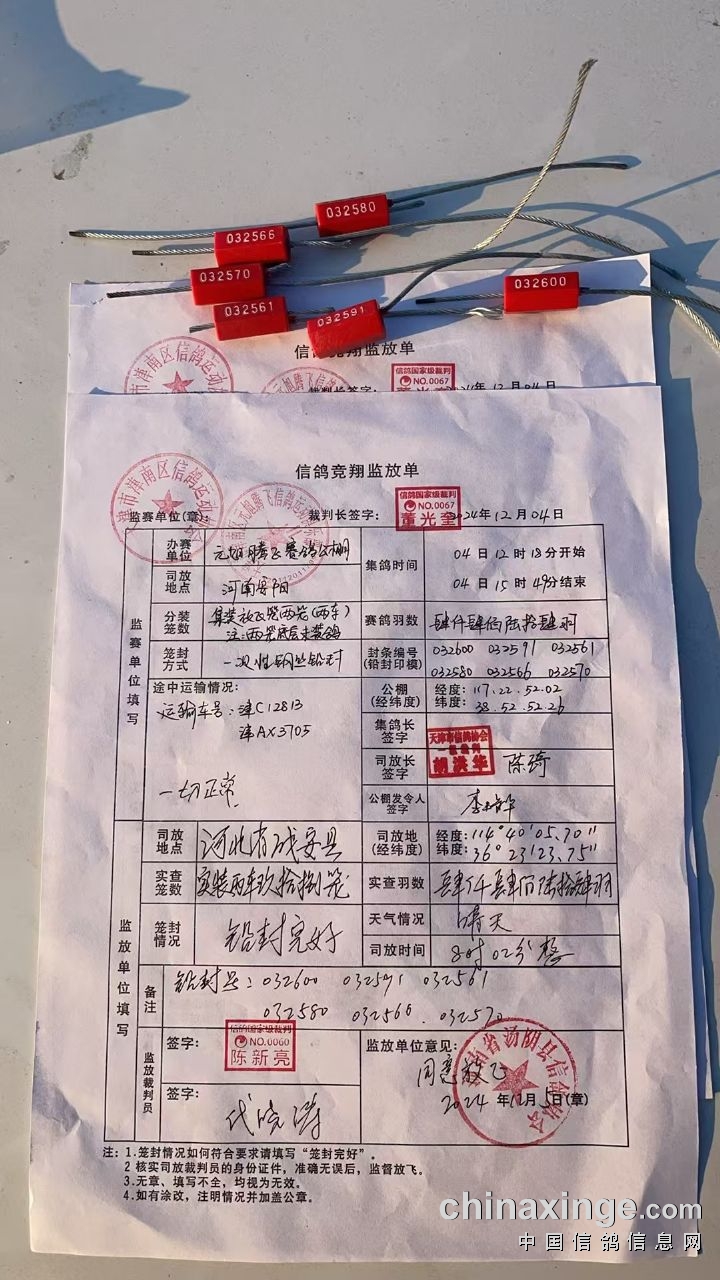 032580
032566
032570
032561
032591
032600
信鸽竞翔监放单
津南区信鸽运动
信鸽国家级裁判
NO.0067
2024年12月04日
信鸽竞翔监放单
津市津南区信鸽运动
监赛单位(章):
裁判长签字:
信鸽国家级裁判
NO.0067
董光奎
2024年12月04日
监赛单位填写
办赛单位
元旭腾飞赛鸽公棚
集鸽时间
04日12时18分开始
04日15时49分结束
司放地点
河南安阳
分装笼数
集装放飞笼两笼(两车)
注:两笼底层未装鸽
赛鸽羽数
肆仟肆佰陆拾肆羽
笼封方式
一次性钢丝铅封
封条编号(铅封印模)
032600 032591 032561
032580 032566 032570
途中运输情况:
运输车号:津C12813
津AX3705
一切正常
公棚(经纬度)
经度:117.22.52.02
纬度:38.52.52.26
集鸽长签字
天津市信鸽协会
一级裁判
胡洪华
司放长签字
陈琦
公棚发令人签字
监放单位填写
司放地点
河北省成安县
司放地(经纬度)
经度:114°40'05.70"
纬度:36°23'23.75"
实查笼数
实装两车玖拾捌笼
实查羽数
肆仟肆佰陆拾肆羽
笼封情况
铅封完好
天气情况
晴天
司放时间
8时02分整
备注
铅封号:032600 032591 032561
032580 032566 032570
监放裁判员
签字:
信鸽国家级裁判
NO.0060
陈新亮
签字:
代晓涛
监放单位意见:
同意放飞
省汤阴县信鸽协会
2024年12月5日(章)
注:1.笼封情况如何符合要求请填写“笼封完好”。
2 核实司放裁判员的身份证件,准确无误后,监督放飞。
3.无章、填写不全,均视为无效。
4.如有涂改,注明情况并加盖公章。
chinaxinge.com
中国信鸽信息网